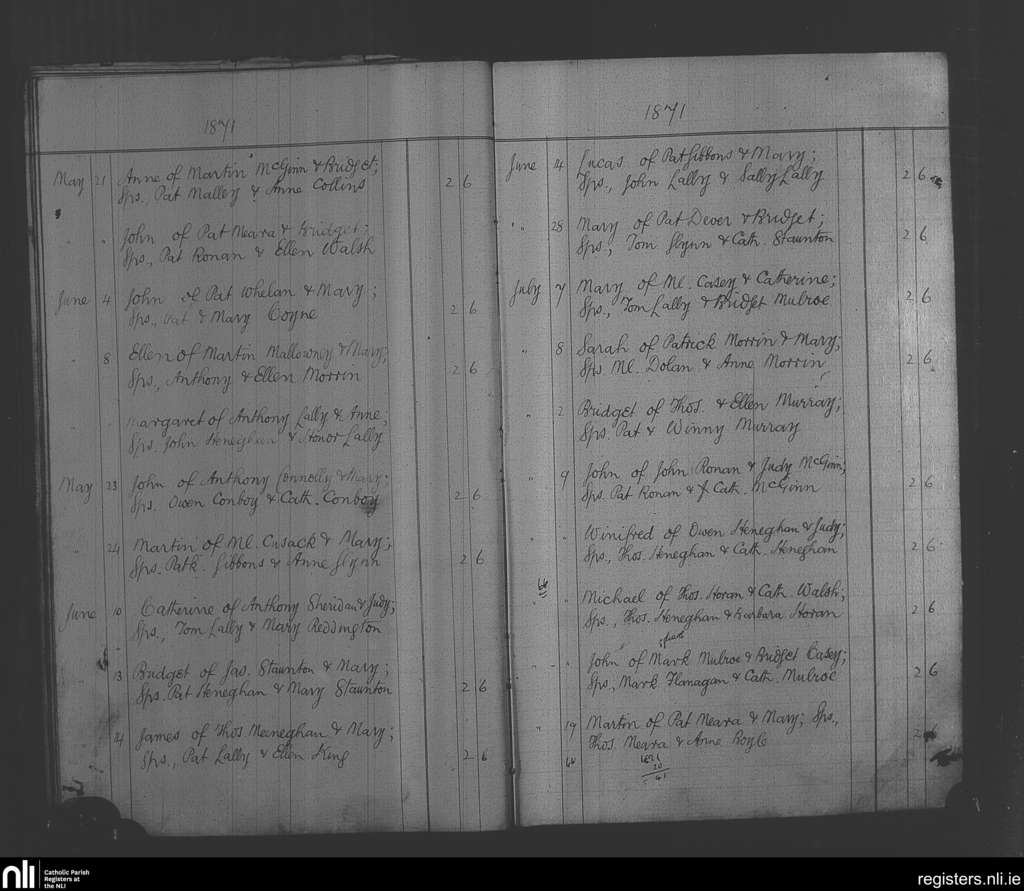 1871
May 21 Anne of Martin McGinn & Bridget;
Sps., Pat Malley & Anne Collins 2 6
" " John of Pat Meara & Bridget;
Sps., Pat Ronan & Ellen Walsh
June 4 John of Pat Whelan & Mary;
Sps., Pat & Mary Coyne 2 6
" 8 Ellen of Martin Mallowney & Mary;
Sps., Anthony & Ellen Morrin 2 6
" " Margaret of Anthony Lally & Anne,
Sps. John Heneghan & Honor Lally
May 23 John of Anthony Connolly & Mary;
Sps. Owen Conboy & Cath. Conboy 2 6
" 24 Martin of Ml. Cusack & Mary;
Sps. Patk. Gibbons & Anne Glynn 2 6
June 10 Catherine of Anthony Sheridan & Judy;
Sps., Tom Lally & Mary Reddington
" 13 Bridget of Jas. Staunton & Mary;
Sps. Pat Heneghan & Mary Staunton 2 6
14 James of Thos Heneghan & Mary;
Sps., Pat Lally & Ellen King 2 6
1871
June 4 Lucas of Pat Gibbons & Mary;
Sps., John Lally & Sally Lally 2 6
" " 28 Mary of Pat Dever & Bridget;
Sps, Tom Glynn & Cath. Staunton 2 6
July 7 Mary of Ml. Casey & Catherine;
Sps., Tom Lally & Bridget Mulroe 2 6
" 8 Sarah of Patrick Morrin & Mary;
Sps. Ml. Dolan & Anne Morrin 2 6
" 2 Bridget of Thos. & Ellen Murray;
Sps. Pat & Winny Murray
" 9 John of John Ronan & Judy McGinn;
Sps. Pat Ronan & Cath. McGinn 2 6
" " Winifred of Owen Heneghan & Judy;
Sps., Thos. Heneghan & Cath. Heneghan 2 6
" " Michael of Thos. Horan & Cath. Walsh;
Sps., Thos. Heneghan & Barbara Horan 2 6
" " John of Mark Mulroe & Bridget Casey;
Sps, Mark Flanagan & Cath. Mulroe 2 6
" 19 Martin of Pat Meara & Mary; Sps.,
Thos. Meara & Anne Boyle 2 6
1871
20
nli
Catholic Parish
Registers at
the NLI
registers.nli.ie